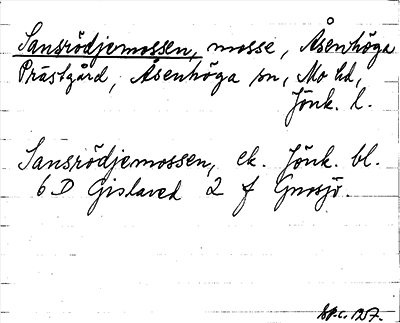 Sansrödjemossen, mosse, Åsenhöga
Prästgård, Åsenhöga sn, Mo hd,
Jönk. l.
Sansrödjemossen, ek. Jönk. bl.
6 D Gislaved 2 f Gnosjö.